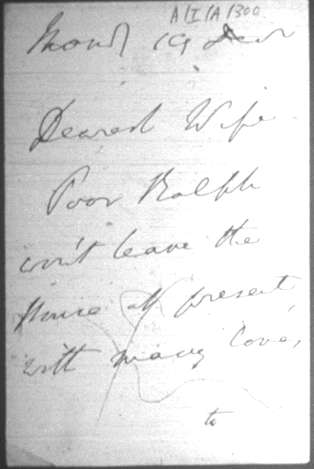 A/I/A/300
Mond 19 Decr
Dearest Wife
Poor Ralph
won't leave the
House at present,
with many love,
to